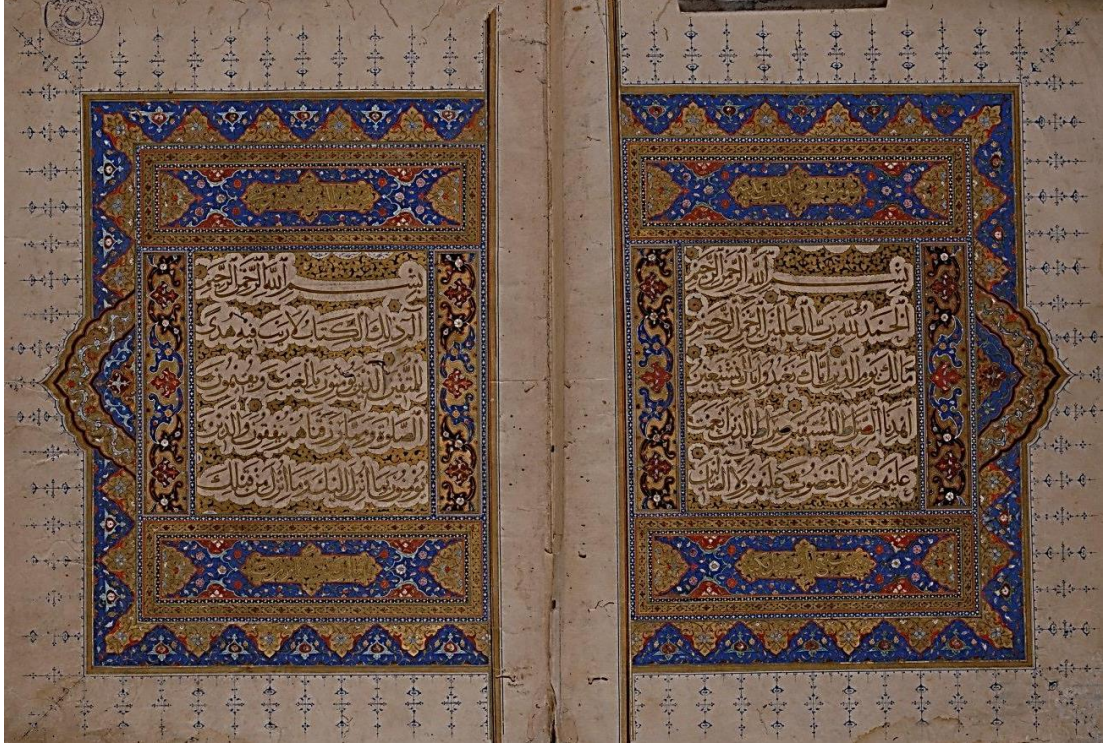 بسم الله الرحمن الرحيم
الحمد لله رب العالمين الرحمن الرحيم
مالك يوم الدين اياك نعبد واياك نستعين
اهدنا الصراط المستقيم صراط الذين انعمت
عليهم غير المغضوب عليهم ولا الضالين
بسم الله الرحمن الرحيم
الم ذلك الكتاب لا ريب فيه هدى
للمتقين الذين يؤمنون بالغيب ويقيمون
الصلوة ومما رزقناهم ينفقون والذين
يؤمنون بما انزل اليك وما انزل من قبلك